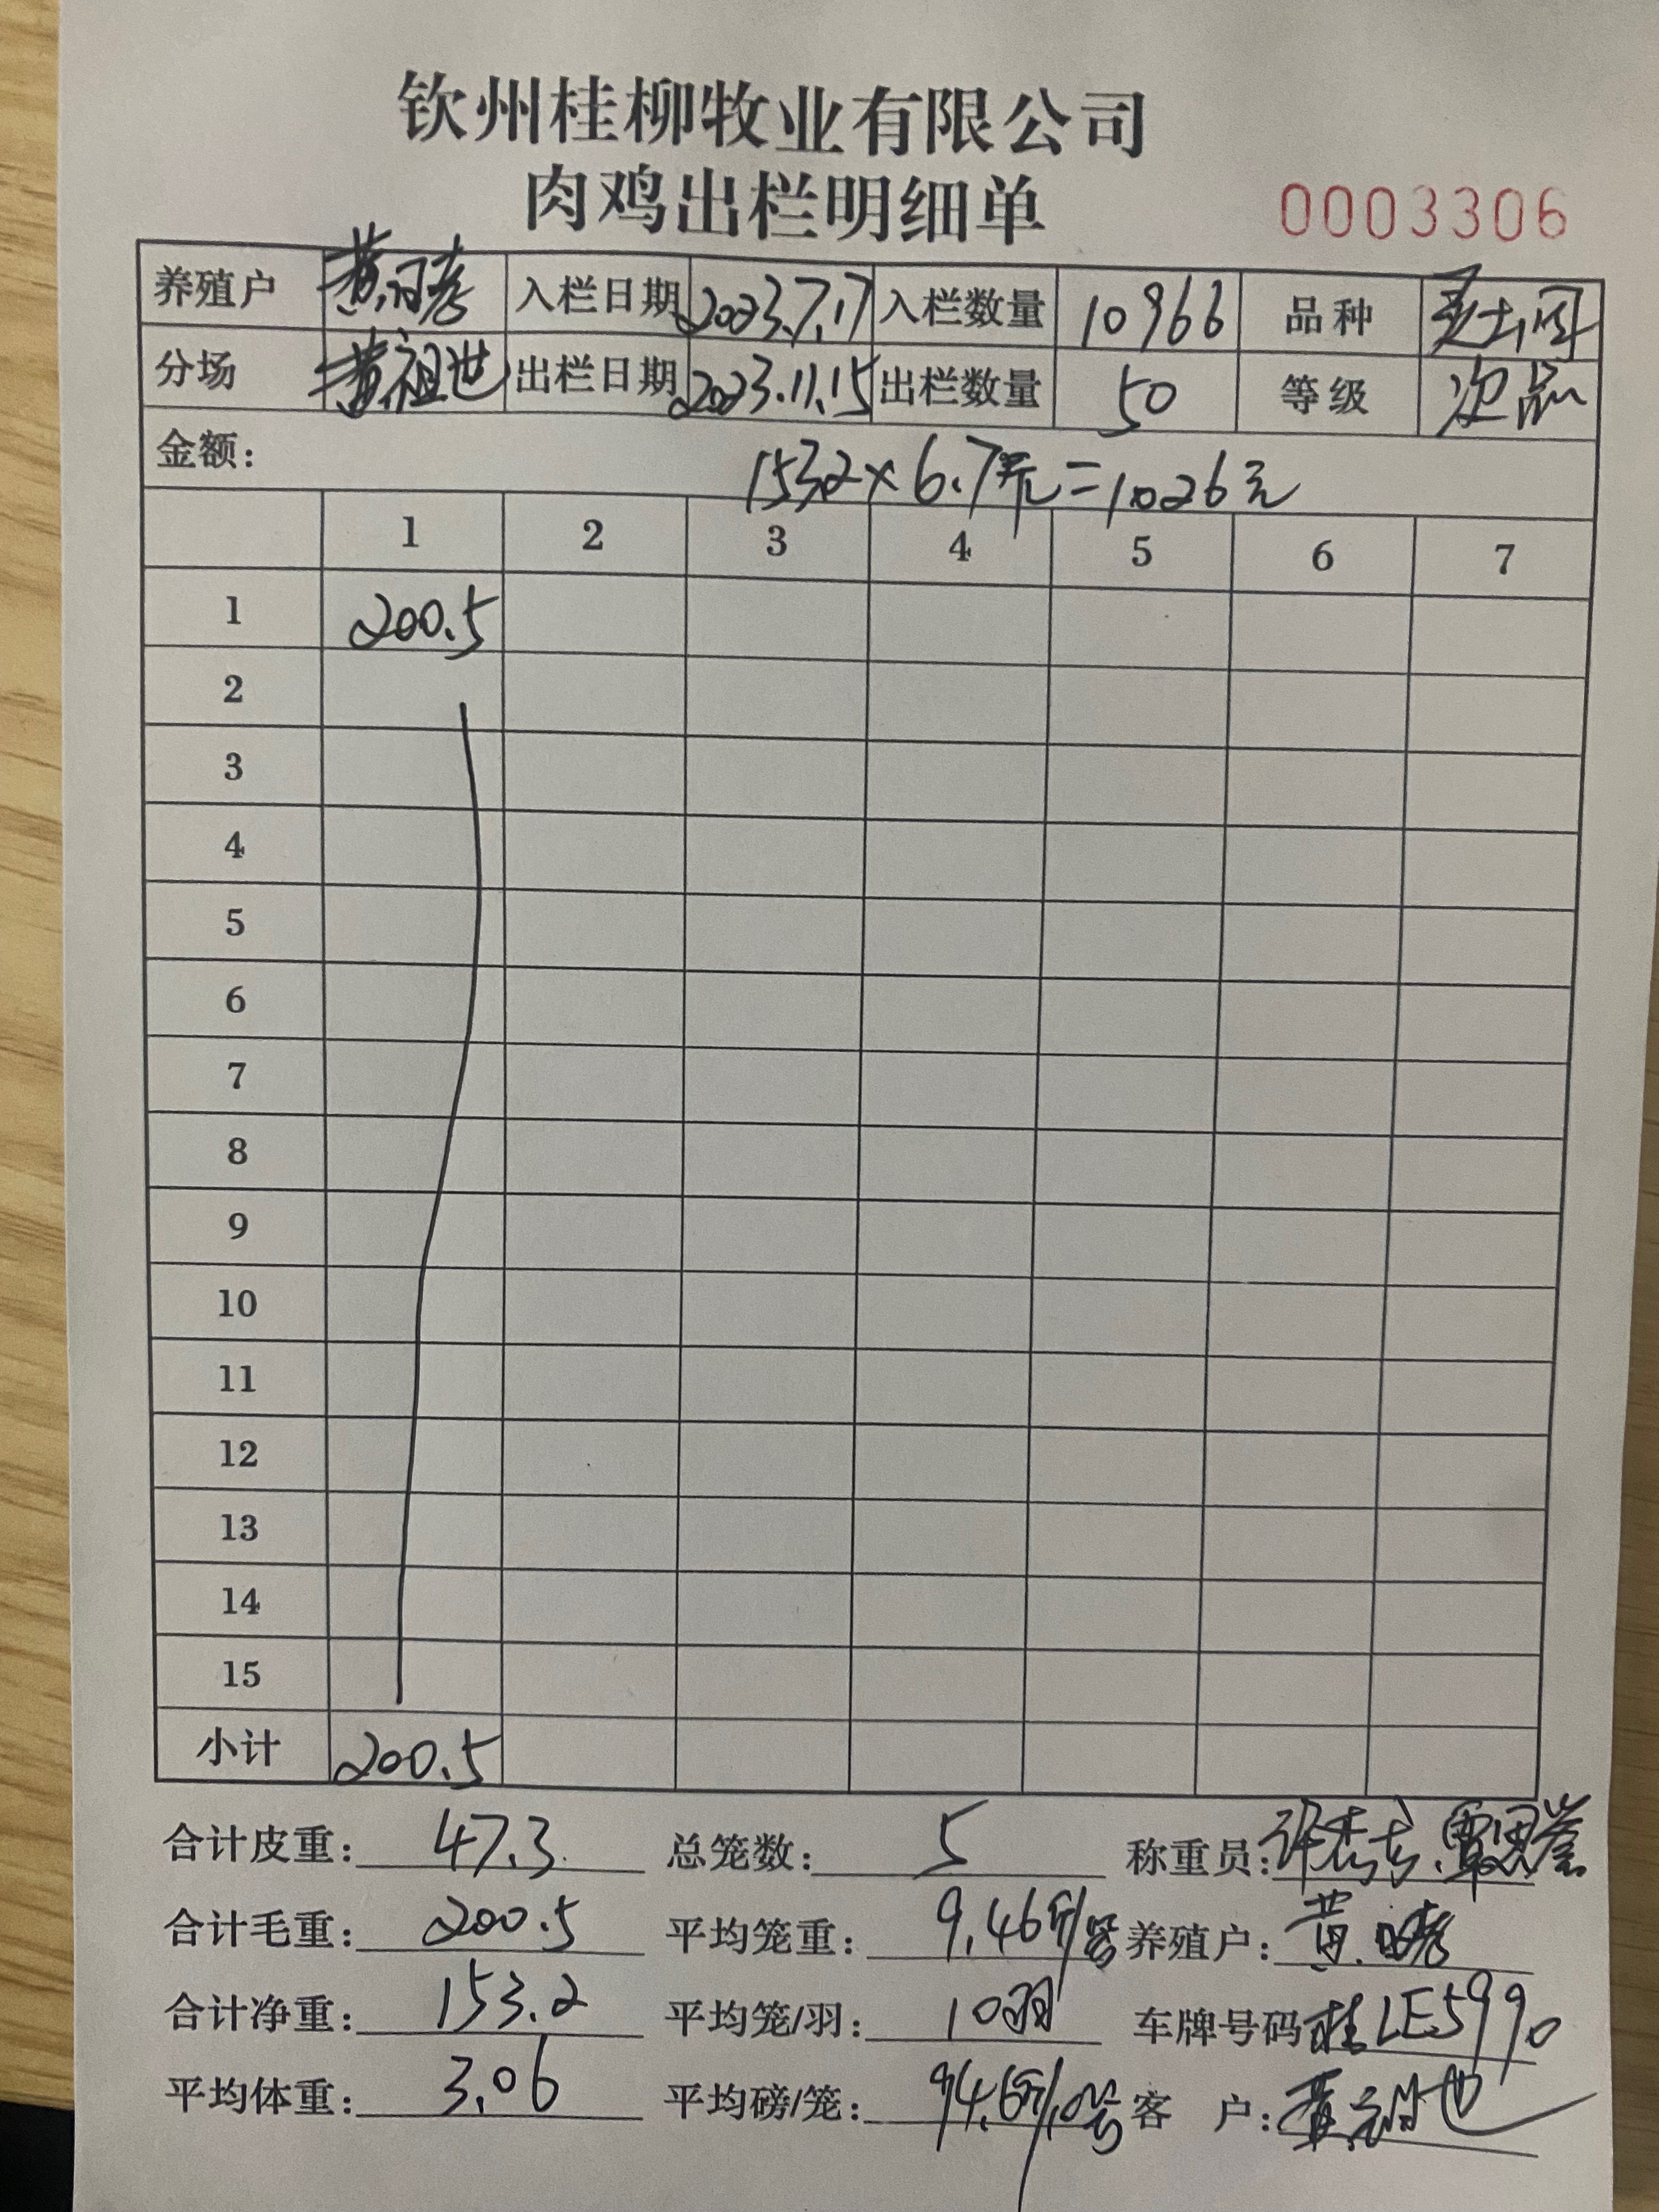 钦州桂柳牧业有限公司
肉鸡出栏明细单 0003306
养殖户 黄 入栏日期 2023.7.17 入栏数量 10966 品种 土
分场 黄祖世 出栏日期 2023.11.15 出栏数量 50 等级 次品
金额: 153.2×6.7元=1026元
1 2 3 4 5 6 7
1 200.5
2
3
4
5
6
7
8
9
10
11
12
13
14
15
小计 200.5
合计皮重: 47.3 总笼数: 5 称重员:
合计毛重: 200.5 平均笼重: 9.46斤/笼 养殖户: 黄
合计净重: 153.2 平均笼/羽: 10羽 车牌号码 桂LE5990
平均体重: 3.06 平均磅/笼: 94.6斤/10笼 客 户: 黄祖世